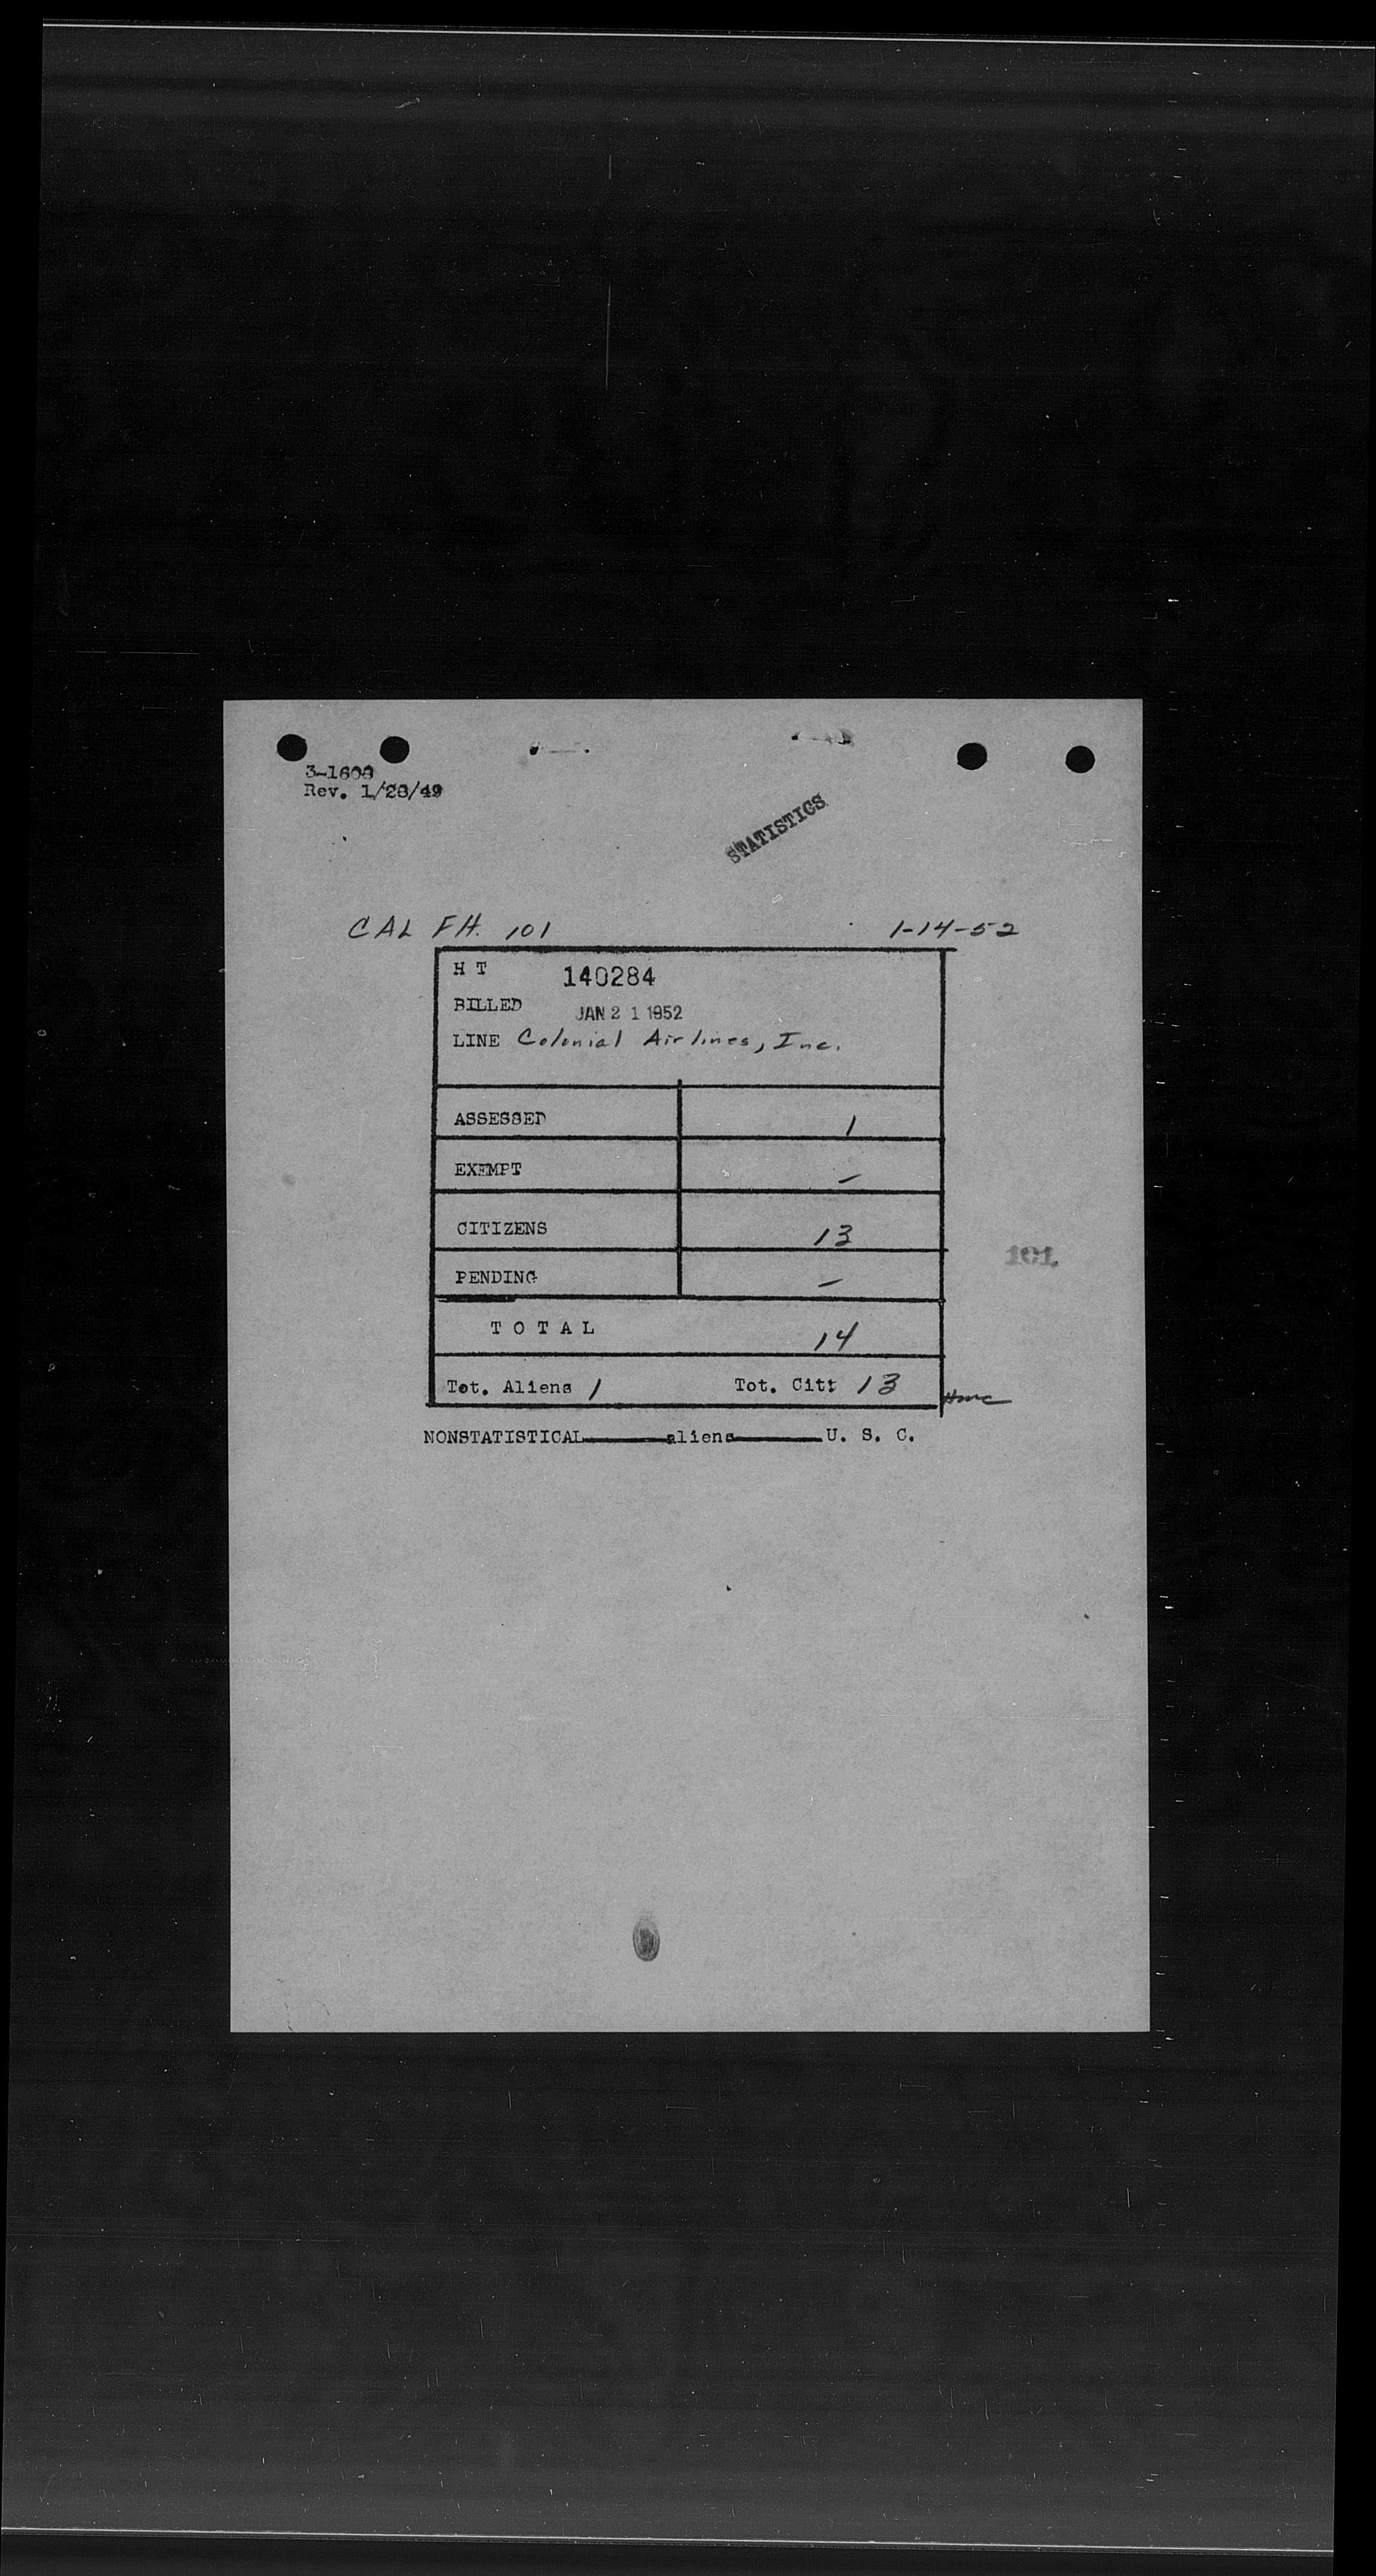 3-1608
Rev. 1/28/49
STATISTICS
CAL FH. 101 1-14-52
H T 140284
BILLED JAN 21 1952
LINE Colonial Airlines, Inc.
ASSESSED 1
EXEMPT –
CITIZENS 13
101.
PENDING –
T O T A L 14
Tot. Aliens 1 Tot. Cit: 13
NONSTATISTICAL______aliens______U. S. C.